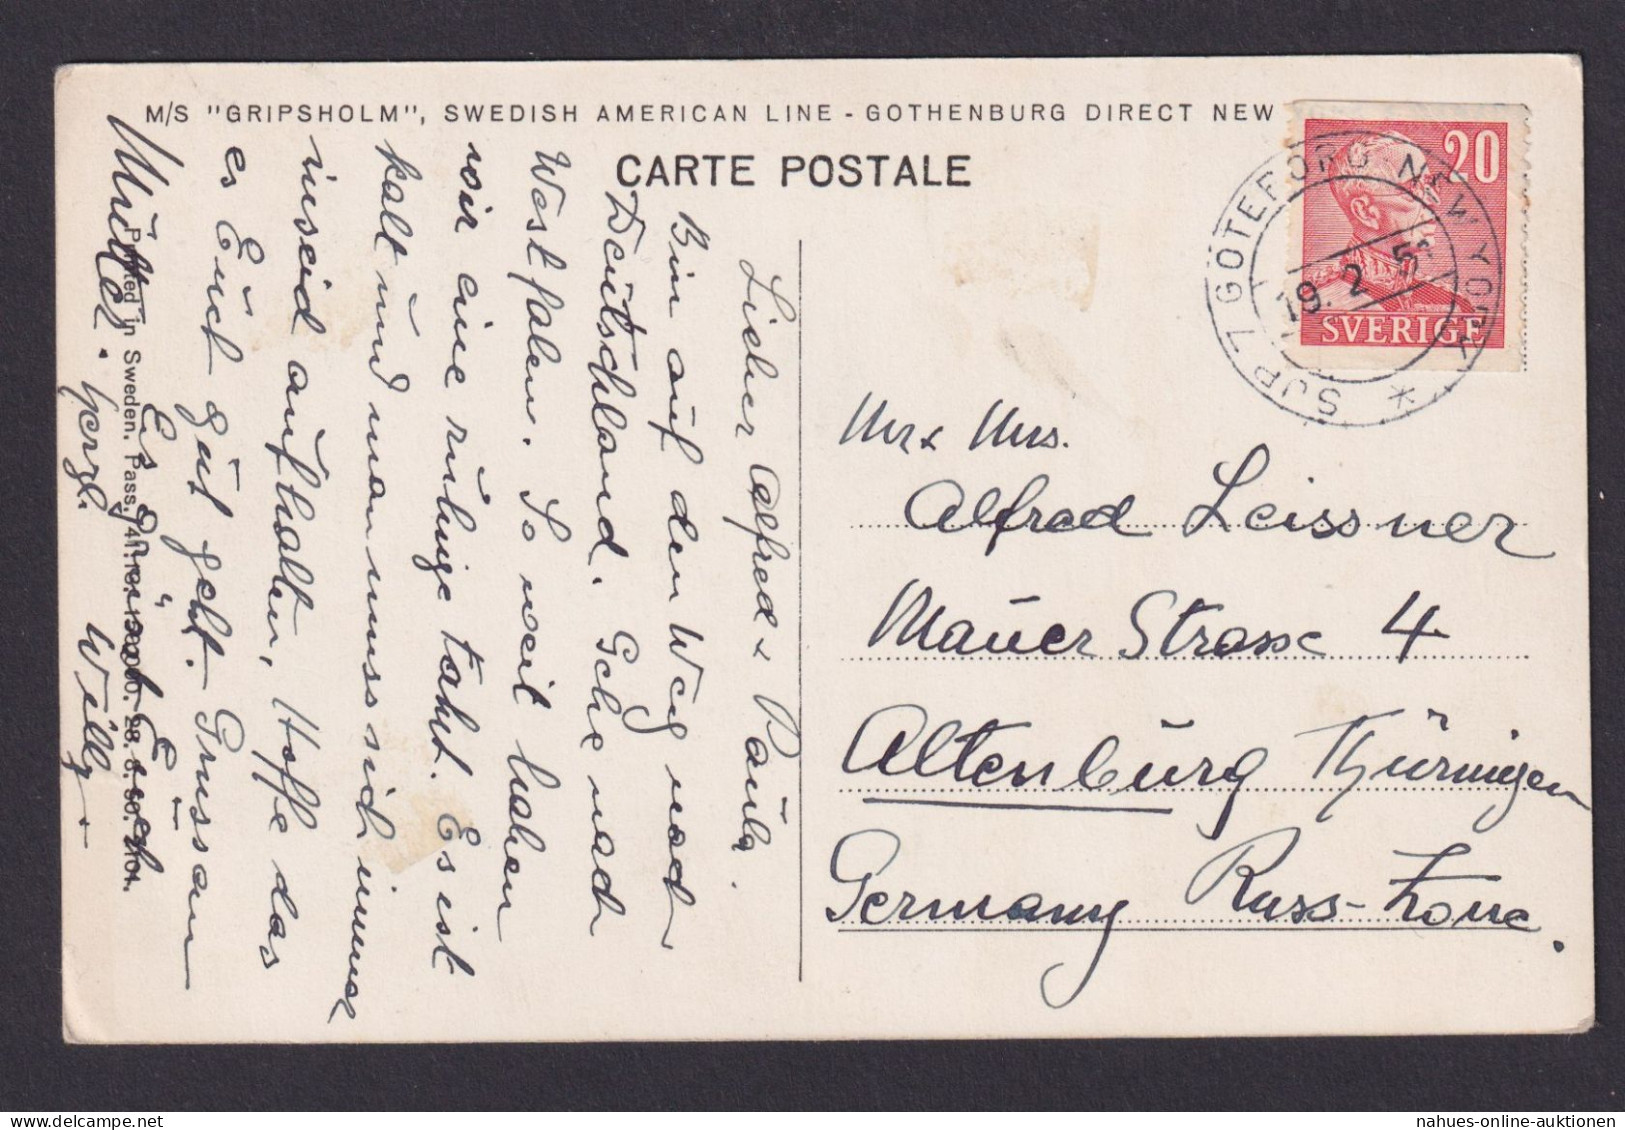 M/S "GRIPSHOLM", SWEDISH AMERICAN LINE - GOTHENBURG DIRECT NEW
CARTE POSTALE
Lieber Alfred & Paula.
Bin auf dem Weg nach
Deutschland. Gehe nach
Westfalen. So weit haben
wir eine ruhige Fahrt. Es ist
kalt und man muss sich immer
inseid aufhalten, Hoffe das
es Euch gut geht. Grussam
Mutter. Es grüsst Euch
herzl. Willy
Printed in Sweden. Pass.
20
SVERIGE
SJP 7 GÖTEBORG-NEW YORK *
19. 2 5
Mr & Mrs.
Alfred Leissner
Mauer Strasse 4
Altenburg Thüringen
Germany Russ-Zone.
nahues-online-auktionen